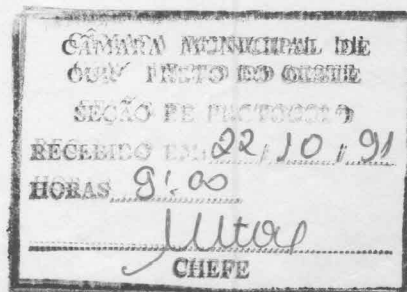 CÂMARA MUNICIPAL DE
OURO PRETO DO OESTE
SEÇÃO DE PROTOCOLO
RECEBIDO EM: 22 / 10 / 91
HORAS 9:00
CHEFE